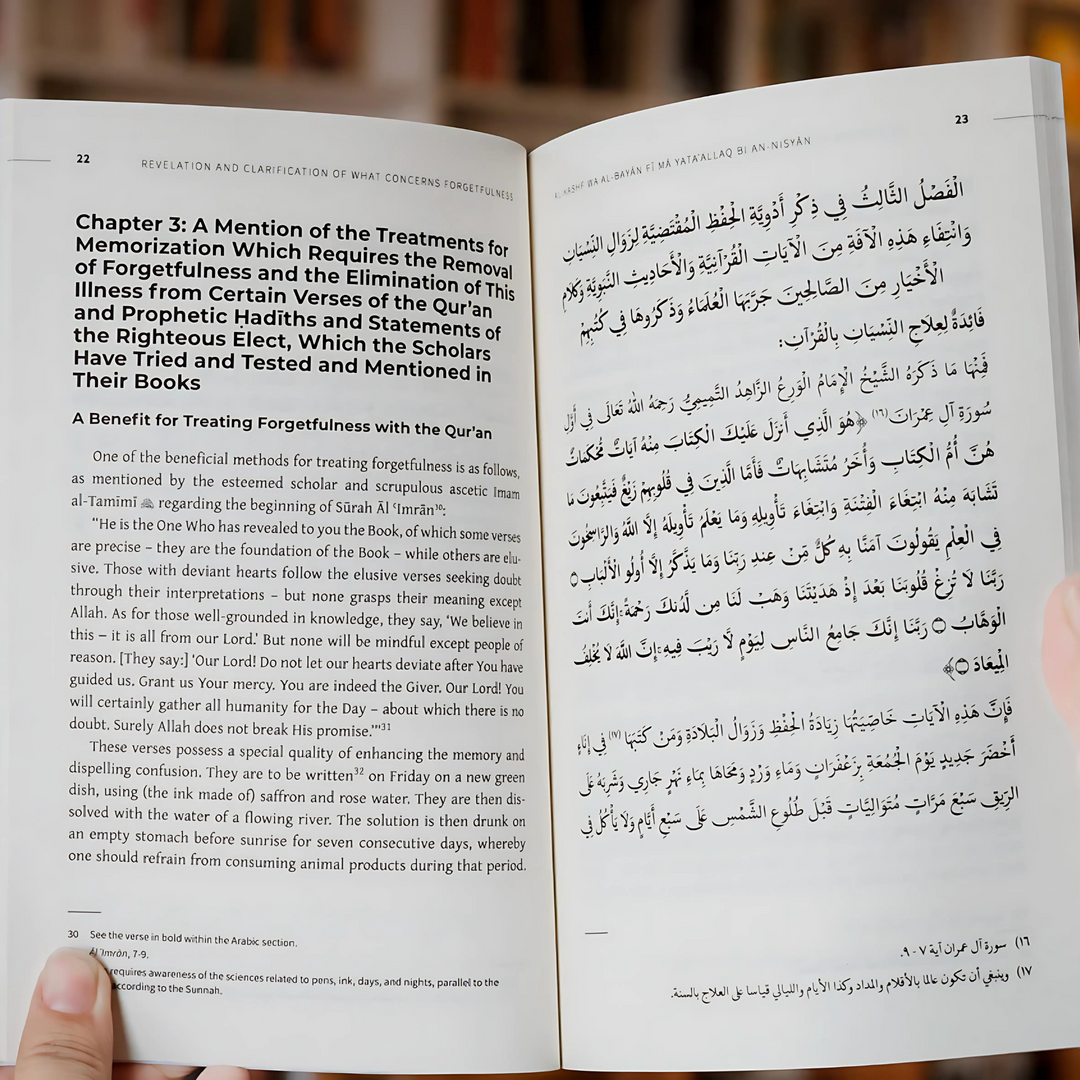 22
REVELATION AND CLARIFICATION OF WHAT CONCERNS FORGETFULNESS
Chapter 3: A Mention of the Treatments for
Memorization Which Requires the Removal
of Forgetfulness and the Elimination of This
Illness from Certain Verses of the Qur’an
and Prophetic Ḥadīths and Statements of
the Righteous Elect, Which the Scholars
Have Tried and Tested and Mentioned in
Their Books
A Benefit for Treating Forgetfulness with the Qur’an
One of the beneficial methods for treating forgetfulness is as follows,
as mentioned by the esteemed scholar and scrupulous ascetic Imam
al-Tamimī regarding the beginning of Sūrah Āl ‘Imrān³⁰:
“He is the One Who has revealed to you the Book, of which some verses
are precise – they are the foundation of the Book – while others are elu-
sive. Those with deviant hearts follow the elusive verses seeking doubt
through their interpretations – but none grasps their meaning except
Allah. As for those well-grounded in knowledge, they say, ‘We believe in
this – it is all from our Lord.’ But none will be mindful except people of
reason. [They say:] ‘Our Lord! Do not let our hearts deviate after You have
guided us. Grant us Your mercy. You are indeed the Giver. Our Lord! You
will certainly gather all humanity for the Day – about which there is no
doubt. Surely Allah does not break His promise.’”³¹
These verses possess a special quality of enhancing the memory and
dispelling confusion. They are to be written³² on Friday on a new green
dish, using (the ink made of) saffron and rose water. They are then dis-
solved with the water of a flowing river. The solution is then drunk on
an empty stomach before sunrise for seven consecutive days, whereby
one should refrain from consuming animal products during that period.
30 See the verse in bold within the Arabic section.
Āl ‘Imrān, 7-9.
requires awareness of the sciences related to pens, ink, days, and nights, parallel to the
according to the Sunnah.
23
AL-KASHF WA AL-BAYĀN FĪ MĀ YATA‘ALLAQ BI AN-NISYĀN
الْفَصْلُ الثَّالِثُ فِي ذِكْرِ أَدْوِيَةِ الْحِفْظِ الْمُقْتَضِيَّةِ لِزَوَالِ النِّسْيَانِ
وَانْتِفَاءِ هَذِهِ الْآفَةِ مِنَ الْآيَاتِ الْقُرْآنِيَّةِ وَالْأَحَادِيثِ النَّبَوِيَّةِ وَكَلَامِ
الْأَخْيَارِ مِنَ الصَّالِحِينَ جَرَّبَهَا الْعُلَمَاءُ وَذَكَرُوهَا فِي كُتُبِهِمْ
فَائِدَةٌ لِعِلَاجِ النِّسْيَانِ بِالْقُرْآنِ:
فَمِنْهَا مَا ذَكَرَهُ الشَّيْخُ الْإِمَامُ الْوَرِعُ الزَّاهِدُ التَّمِيمِيُّ رَحِمَهُ اللهُ تَعَالَى فِي أَوَّلِ
سُورَةِ آلِ عِمْرَانَ(١٦) ﴿هُوَ الَّذِي أَنزَلَ عَلَيْكَ الْكِتَابَ مِنْهُ آيَاتٌ مُّحْكَمَاتٌ
هُنَّ أُمُّ الْكِتَابِ وَأُخَرُ مُتَشَابِهَاتٌ فَأَمَّا الَّذِينَ فِي قُلُوبِهِمْ زَيْغٌ فَيَتَّبِعُونَ مَا
تَشَابَهَ مِنْهُ ابْتِغَاءَ الْفِتْنَةِ وَابْتِغَاءَ تَأْوِيلِهِ وَمَا يَعْلَمُ تَأْوِيلَهُ إِلَّا اللَّهُ وَالرَّاسِخُونَ
فِي الْعِلْمِ يَقُولُونَ آمَنَّا بِهِ كُلٌّ مِّنْ عِندِ رَبِّنَا وَمَا يَذَّكَّرُ إِلَّا أُولُو الْأَلْبَابِ ۝
رَبَّنَا لَا تُزِغْ قُلُوبَنَا بَعْدَ إِذْ هَدَيْتَنَا وَهَبْ لَنَا مِن لَّدُنكَ رَحْمَةً ۚ إِنَّكَ أَنتَ
الْوَهَّابُ ۝ رَبَّنَا إِنَّكَ جَامِعُ النَّاسِ لِيَوْمٍ لَّا رَيْبَ فِيهِ ۚ إِنَّ اللَّهَ لَا يُخْلِفُ
الْمِيعَادَ ۝﴾
فَإِنَّ هَذِهِ الْآيَاتِ خَاصِّيَتُهَا زِيَادَةُ الْحِفْظِ وَزَوَالُ الْبَلَادَةِ وَمَنْ كَتَبَهَا(١٧) فِي إِنَاءٍ
أَخْضَرَ جَدِيدٍ يَوْمَ الْجُمُعَةِ بِزَعْفَرَانٍ وَمَاءِ وَرْدٍ وَمَحَاهَا بِمَاءِ نَهْرٍ جَارِي وَشَرِبَهُ عَلَى
الرِّيقِ سَبْعَ مَرَّاتٍ مُتَوَالِيَاتٍ قَبْلَ طُلُوعِ الشَّمْسِ عَلَى سَبْعِ أَيَّامٍ وَلَا يَأْكُلُ فِي
١٦) سورة آل عمران آية ٧ - ٩.
١٧) وينبغي أن تكون عالما بالأقلام والمداد وكذا الأيام والليالي قياسا على العلاج بالسنة.